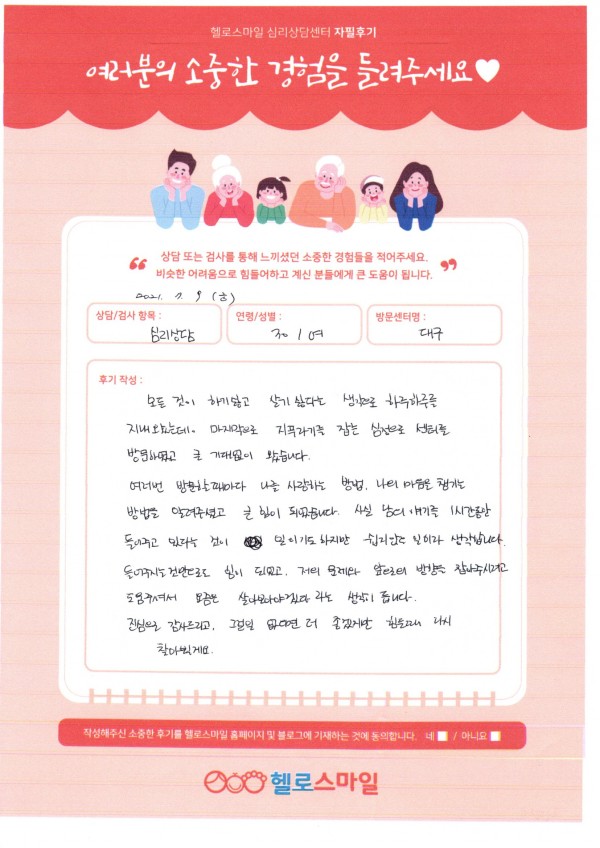 헬로스마일 심리상담센터 자필후기
여러분의 소중한 경험을 들려주세요♥
“ 상담 또는 검사를 통해 느끼셨던 소중한 경험들을 적어주세요.
비슷한 어려움으로 힘들어하고 계신 분들에게 큰 도움이 됩니다. ”
2021. 7. 9 (금)
상담/검사 항목 : 심리상담
연령/성별 : 30 / 여
방문센터명 : 대구
후기 작성 :
모든 것이 하기싫고 살기 싫다는 생각으로 하루하루를
지내왔는데. 마지막으로 지푸라기를 잡는 심정으로 센터를
방문하였고 큰 기대없이 왔습니다.
여러번 방문할때마다 나를 사랑하는 방법, 나의 마음을 챙기는
방법을 알려주셨고 큰 힘이 되었습니다. 사실 남의 얘기를 1시간동안
들어주고 있다는 것이 일이기도하지만 쉽지않은 일이라 생각합니다.
들어주시는것만으로도 힘이 되었고, 저의 문제와 앞으로의 방향을 잡아주시려고
도움주셔서 요즘은 살아보아야겠다 라는 생각이 듭니다.
진심으로 감사드리고, 그럴일 없다면 더 좋겠지만 힘들때 다시
찾아뵐게요.
작성해주신 소중한 후기를 헬로스마일 홈페이지 및 블로그에 기재하는 것에 동의합니다. 네 / 아니요
헬로스마일